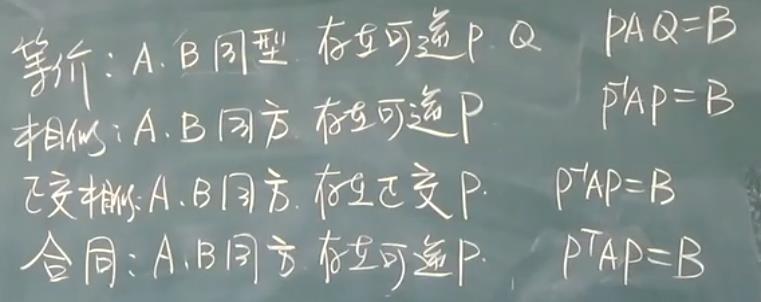 等价：A.B同型 存在可逆P Q PAQ=B
相似：A.B同方 存在可逆P P⁻¹AP=B
正交相似：A.B同方. 存在正交P. P⁻¹AP=B
合同：A.B同方 存在可逆P. PᵀAP=B